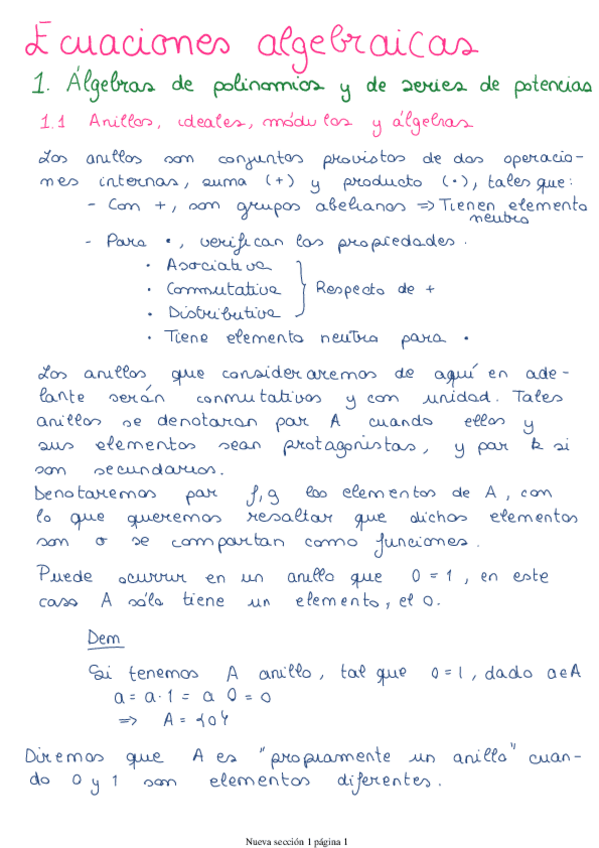 Ecuaciones algebraicas
1. Álgebras de polinomios y de series de potencias
1.1 Anillos, ideales, módulos y álgebras
Los anillos son conjuntos provistos de dos operacio-
nes internas, suma (+) y producto (·), tales que:
- Con +, son grupos abelianos ⇒ Tienen elemento
neutro
- Para ·, verifican las propiedades.
· Asociativa
· Conmutativa } Respecto de +
· Distributiva
· Tiene elemento neutro para ·
Los anillos que consideraremos de aquí en ade-
lante serán conmutativos y con unidad. Tales
anillos se denotaran por A cuando ellos y
sus elementos sean protagonistas, y por k si
son secundarios.
Denotaremos por f, g los elementos de A, con
lo que queremos resaltar que dichos elementos
son o se comportan como funciones.
Puede ocurrir en un anillo que 0 = 1, en este
caso A sólo tiene un elemento, el 0.
Dem
Si tenemos A anillo, tal que 0 = 1, dado a∈A
a = a·1 = a 0 = 0
⇒ A = {0}
Diremos que A es "propiamente un anillo" cuan-
do 0 y 1 son elementos diferentes.
Nueva sección 1 página 1